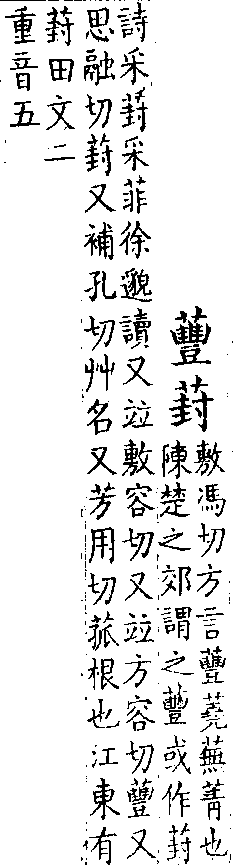 蘴葑
敷馮切方言蘴蕘蕪菁也
陳楚之郊謂之蘴或作葑
詩采葑采菲徐邈讀又竝敷容切又竝方容切蘴又
思融切葑又補孔切艸名又芳用切菰根也江東有
葑田文二
重音五